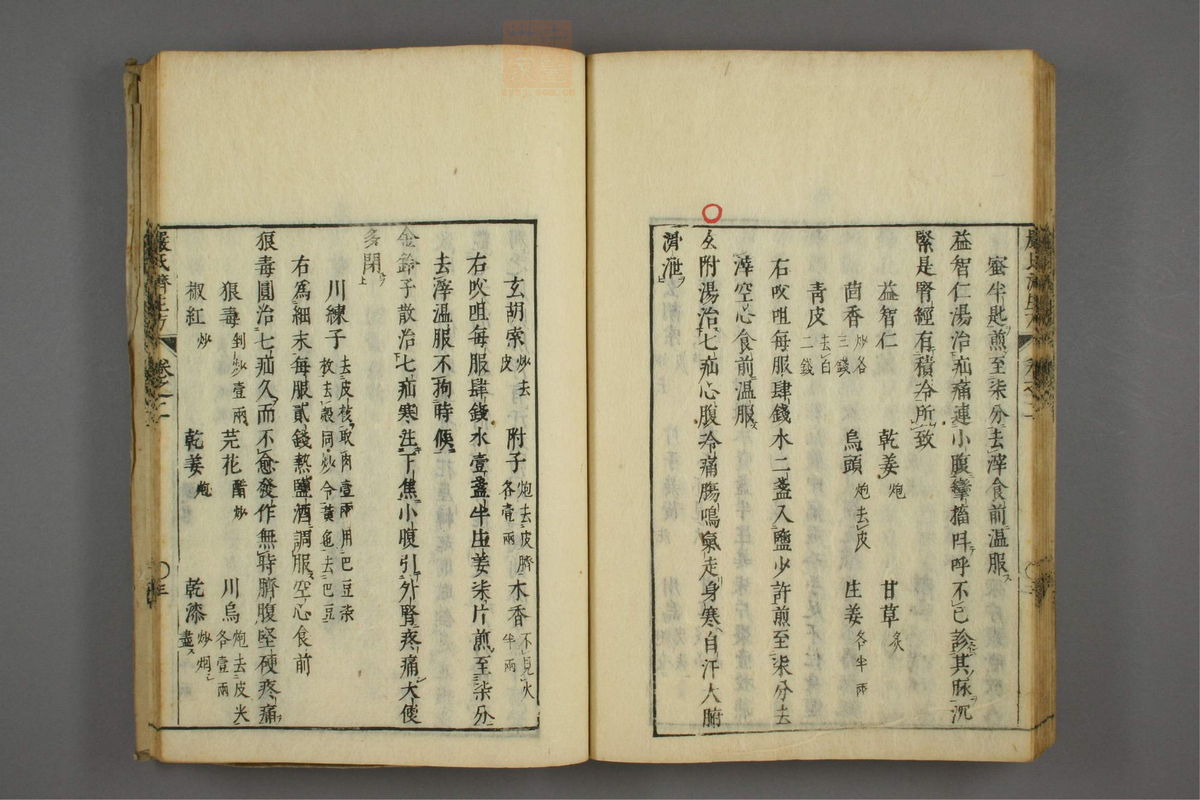 蜜半匙煎至柒分去滓食前温服
益智仁湯治疝痛連小腹攣搐叫呼不已診其脉沉
緊是腎經有積冷所致
益智仁 乾姜炮 甘草炙
茴香炒各三錢 烏頭炮去皮 生姜各半兩
青皮去白二錢
右㕮咀每服肆錢水二盞入鹽少許煎至柒分去
滓空心食前温服
玄附湯治七疝心腹冷痛腸鳴氣走身寒自汗大腑
滑泄
玄胡索炒去皮 附子炮去皮臍各壹兩 木香不見火半兩
右㕮咀每服肆錢水壹盞半生姜柒片煎至柒分
去滓温服不拘時候
金鈴子散治七疝寒注下焦小腹引外腎疼痛大便
多閉
川練子去皮核取肉壹兩用巴豆柒枚去殻同炒令黄色去巴豆
右為細末每服貳錢熱鹽酒調服空心食前
狼毒圓治七疝久而不愈發作無時臍腹堅硬疼痛
狼毒剉炒壹兩 芫花醋炒 川烏炮去皮尖各壹兩
椒紅炒 乾姜炮 乾漆炒烟盡
嚴氏濟生方 卷之二 〇三